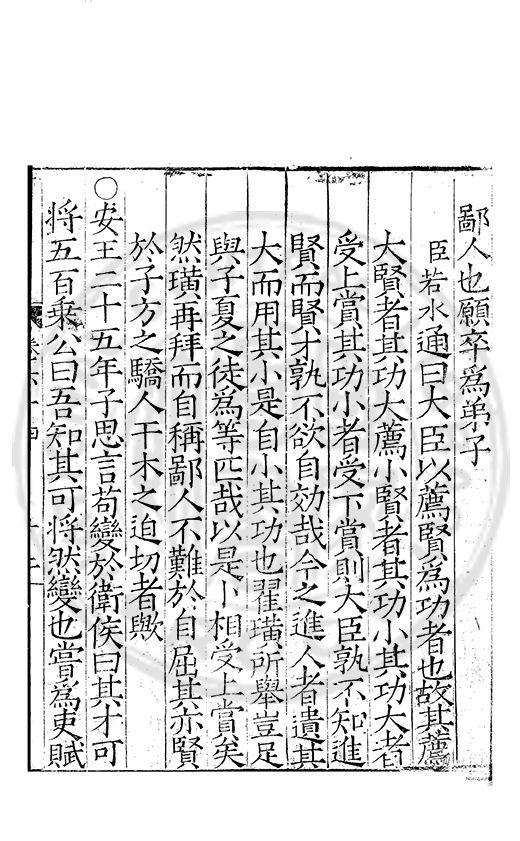 鄙人也願卒爲弟子
臣若水通曰大臣以薦賢爲功者也故其薦
大賢者其功大薦小賢者其功小其功大者
受上賞其功小者受下賞則大臣孰不知進
賢而賢才孰不欲自効哉今之進人者遺其
大而用其小是自小其功也翟璜所舉豈足
與子夏之徒爲等匹哉以是卜相受上賞矣
然璜再拜而自稱鄙人不難於自屈其亦賢
於子方之驕人干木之迫切者歟
○安王二十五年子思言苟變於衛侯曰其才可
將五百乗公曰吾知其可將然變也嘗爲吏賦